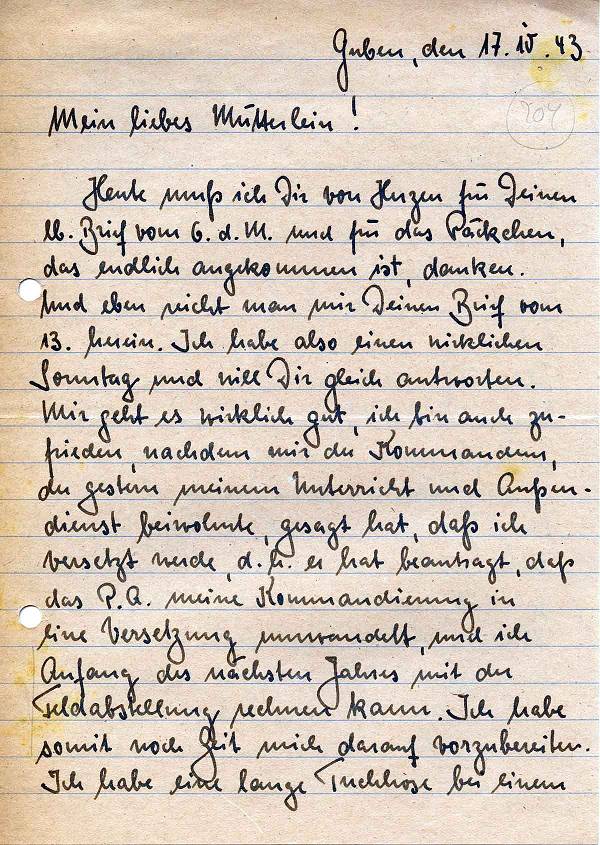 Guben, den 17. IV. 43
204
Mein liebes Mutterlein!
Heute muß ich Dir von Herzen für Deinen
lb. Brief vom 6. d. M. und für das Päckchen,
das endlich angekommen ist, danken.
Und eben reicht man mir Deinen Brief vom
13. herein. Ich habe also einen wirklichen
Sonntag und will Dir gleich antworten.
Mir geht es wirklich gut, ich bin auch zu-
frieden, nachdem mir der Kommandeur,
der gestern meinem Unterricht und Außen-
dienst beiwohnte, gesagt hat, daß ich
versetzt werde, d. h. er hat beantragt, daß
das P.A. meine Kommandierung in
eine Versetzung umwandelt, und ich
Anfang des nächsten Jahres mit der
Feldabstellung rechnen kann. Ich habe
somit noch Zeit mich darauf vorzubereiten.
Ich habe eine lange Tuchhose bei einem